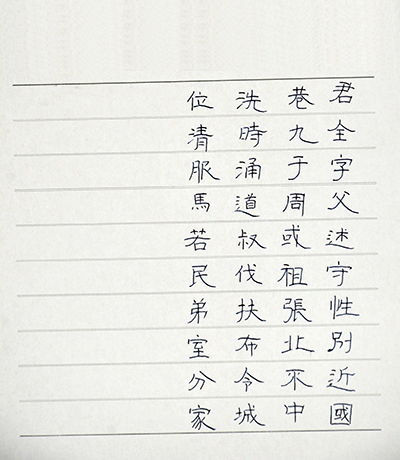 君全字父述守性別近國
巷九于周或祖張北不中
洗時涌道叔伐扶布令城
位清服馬若民弟室分家